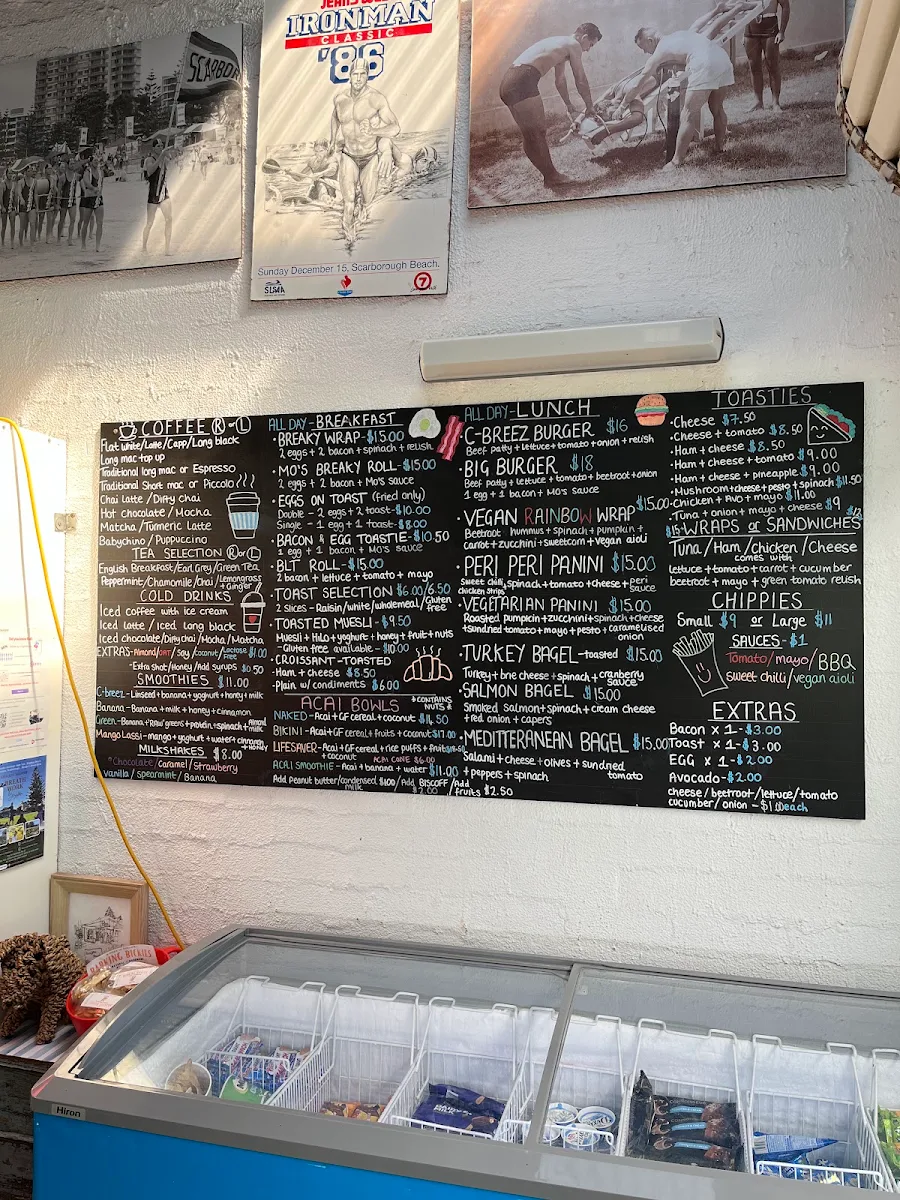 SCARBOR
JEANS WEST
IRONMAN
CLASSIC
'86
Sunday December 15, Scarborough Beach.
SLSAA
7
COFFEE R - L
Flat white/Latte/Capp/Long black
Long mac top up
Traditional long mac or Espresso
Traditional Short mac or Piccolo
Chai latte/Dirty chai
Hot chocolate/Mocha
Matcha/Turmeric Latte
Babychino/Puppuccino
TEA SELECTION R or L
English Breakfast/Earl Grey/Green Tea
Peppermint/Chamomile/Chai/Lemongrass
+Ginger
COLD DRINKS
Iced coffee with ice cream
Iced Latte/Iced long black
Iced chocolate/Dirty chai/Mocha/Matcha
EXTRAS-Almond/OAT/Soy/Coconut/Lactose Free $1.00
-Extra Shot/Honey/Add syrups $0.50
SMOOTHIES $11.00
C-breez-Linseed+banana+yoghurt+honey+milk
Banana-Banana+milk+honey+cinnamon
Green-Banana+"Raw"greens+protein+spinach+Almond milk
Mango Lassi-mango+yoghurt+water+cinnamon
+Honey
MILKSHAKES $8.00
Chocolate/Caramel/Strawberry
Vanilla/Spearmint/Banana
ALL DAY-BREAKFAST
·BREAKY WRAP-$15.00
2 eggs+2 bacon+spinach+relish
·MO'S BREAKY ROLL-$15.00
2 eggs+2 bacon+Mo's sauce
·EGGS ON TOAST (fried only)
Double - 2 eggs+2 toast-$10.00
Single - 1 egg+1 toast-$8.00
·BACON & EGG TOASTIE-$10.50
1 egg+1 bacon+Mo's sauce
·BLT ROLL-$15.00
2 bacon+lettuce+tomato+mayo
·TOAST SELECTION $6.00/6.50
2 Slices-Raisin/white/wholemeal/Gluten free
·TOASTED MUESLI-$9.50
Muesli+Milo+yoghurt+honey+fruit+nuts
-Gluten free available-$10.00
·CROISSANT-TOASTED
·Ham+cheese $8.50
·Plain w/condiments $6.00
ACAI BOWLS *CONTAINS NUTS*
NAKED-Acai+GF cereal+coconut $11.50
BIKINI-Acai+GF cereal+fruits+coconut $17.00
LIFESAVER-Acai+GF cereal+rice puffs+fruit
+coconut ACAI CONE $6.00
ACAI SMOOTHIE-Acai+banana+water $11.00
Add Peanut butter/condensed milk $1.00/Add BISCOFF $2.00/Add fruits $2.50
ALL DAY-LUNCH
·C-BREEZ BURGER $16
Beef patty+lettuce+tomato+onion+relish
·BIG BURGER $18
Beef patty+lettuce+tomato+beetroot+onion
1 egg+1 bacon+Mo's sauce
·VEGAN RAINBOW WRAP $15.00
Beetroot hummus+spinach+pumpkin+
carrot+zucchini+sweetcorn+vegan aioli
·PERI PERI PANINI $15.00
Sweet chilli chicken strips spinach+tomato+cheese+peri sauce
·VEGETARIAN PANINI $15.00
Roasted pumpkin+zucchini+spinach+cheese
+sundried tomato+mayo+pesto+caramelised
onion
·TURKEY BAGEL-toasted $15.00
Turkey+brie cheese+spinach+cranberry sauce
·SALMON BAGEL $15.00
Smoked salmon+spinach+cream cheese
+red onion+capers
·MEDITERANEAN BAGEL $15.00
Salami+cheese+olives+sundried tomato
+peppers+spinach
TOASTIES
·Cheese $7.50
·Cheese+tomato $8.50
·Ham+cheese $8.50
·Ham+cheese+tomato $9.00
·Ham+cheese+pineapple $9.00
·Mushroom+cheese+pesto+spinach $11.50
·Chicken+Avo+mayo $11.00
·Tuna+onion+mayo+cheese $9
$15-WRAPS or SANDWICHES $12
Tuna/Ham/Chicken/Cheese
comes with
lettuce+tomato+carrot+cucumber
beetroot+mayo+green tomato relish
CHIPPIES
Small $9 or Large $11
SAUCES-$1
Tomato/mayo/BBQ
sweet chilli/vegan aioli
EXTRAS
Bacon x 1-$3.00
Toast x 1-$3.00
EGG x 1-$2.00
Avocado-$2.00
cheese/beetroot/lettuce/tomato
cucumber/onion-$1.00each
BARKING BICKIES
Hiron